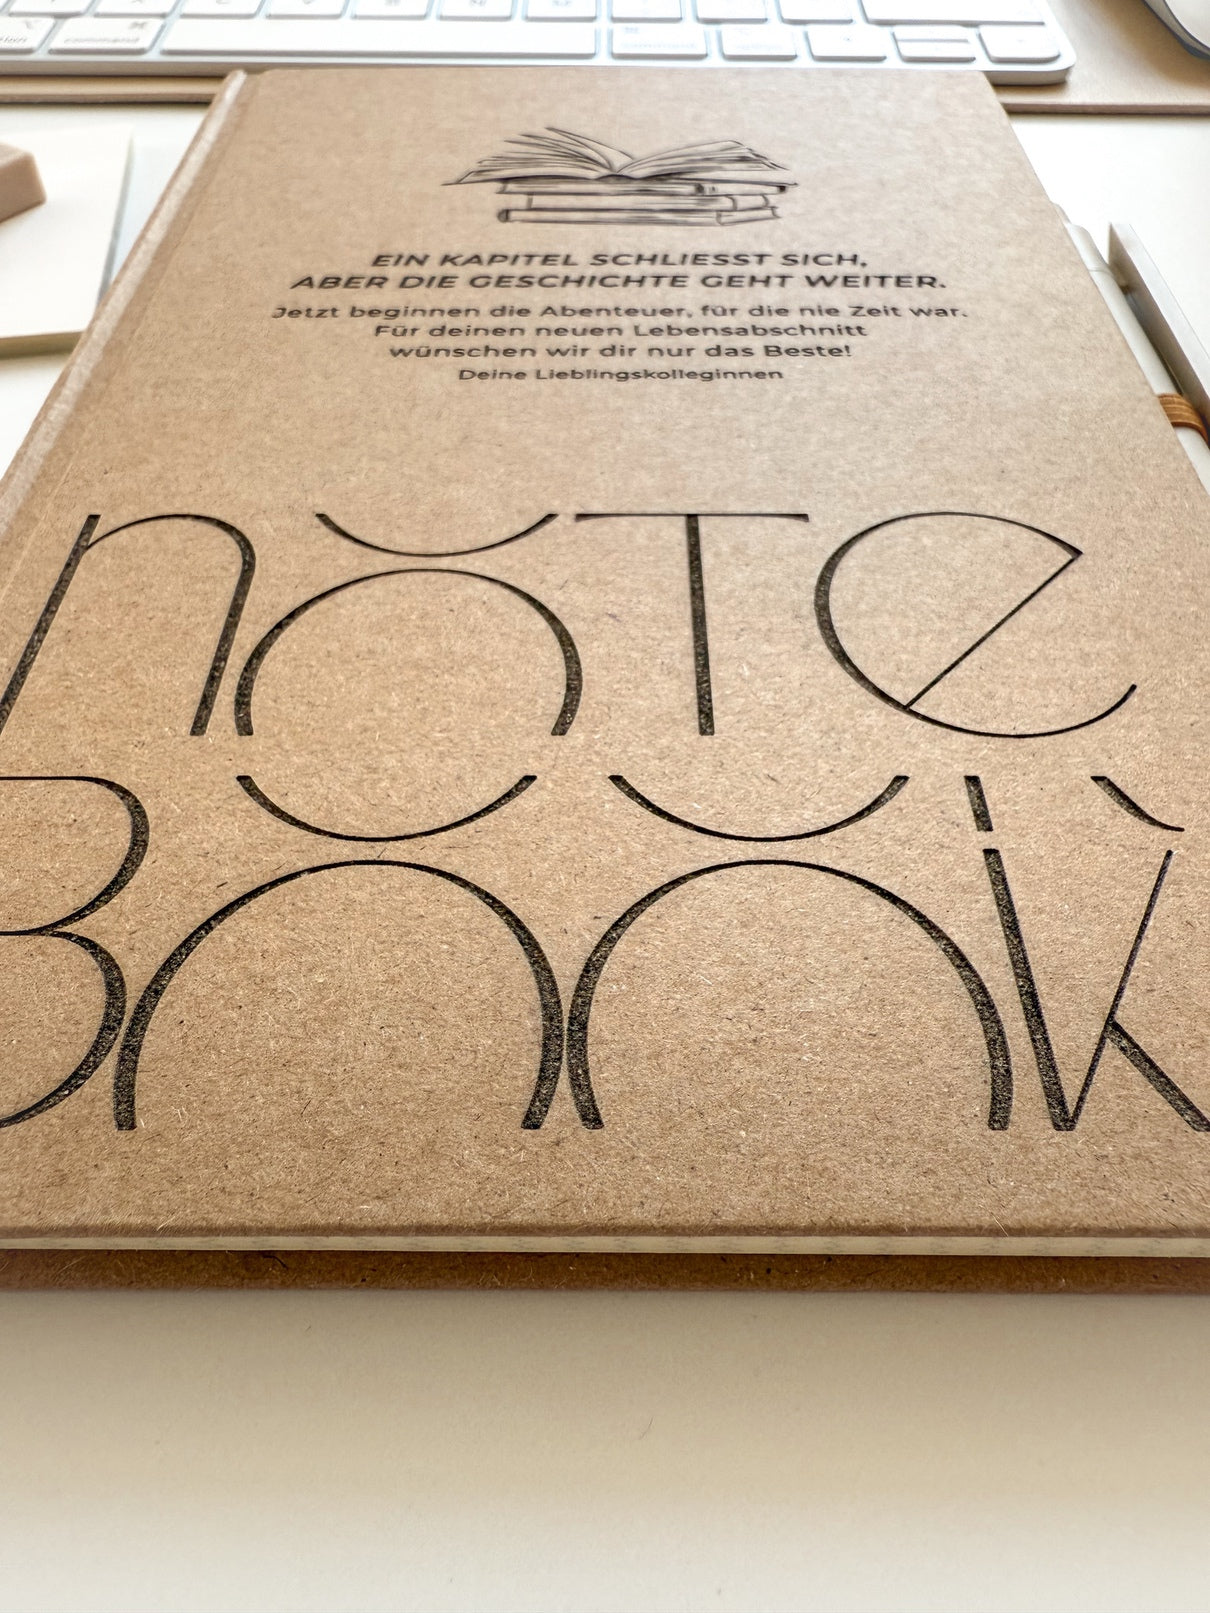 command
EIN KAPITEL SCHLIESST SICH,
ABER DIE GESCHICHTE GEHT WEITER.
Jetzt beginnen die Abenteuer, für die nie Zeit war.
Für deinen neuen Lebensabschnitt
wünschen wir dir nur das Beste!
Deine Lieblingskolleginnen
noTe
Book